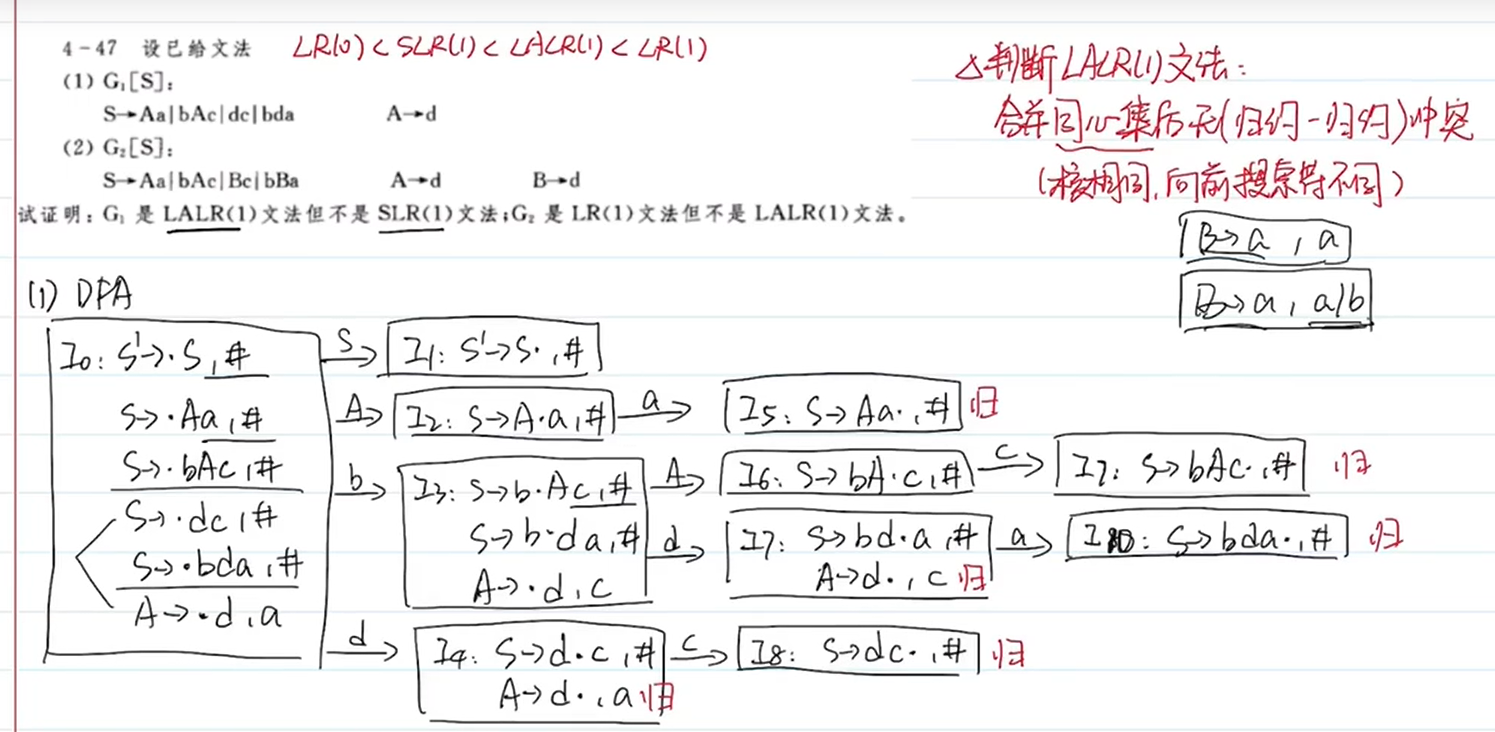 4-47 设已给文法 LR(0) < SLR(1) < LALR(1) < LR(1)
(1) G₁[S]:
S→Aa|bAc|dc|bda A→d
(2) G₂[S]:
S→Aa|bAc|Bc|bBa A→d B→d
试证明:G₁ 是 LALR(1)文法但不是 SLR(1)文法;G₂ 是 LR(1)文法但不是 LALR(1)文法。
△判断LALR(1)文法:
合并同心集后无(归约-归约)冲突
(核相同,向前搜索符不同)
B→a , a
B→a , a/b
(1) DFA
I0: S'→·S,#
S→·Aa,#
S→·bAc,#
S→·dc,#
S→·bda,#
A→·d,a
S
I1: S'→S·,#
A
I2: S→A·a,#
a
I5: S→Aa·,# 归
b
I3: S→b·Ac,#
S→b·da,#
A→·d,c
A
I6: S→bA·c,#
c
I7: S→bAc·,# 归
d
I7: S→bd·a,#
A→d·,c 归
a
I10: S→bda·,# 归
d
I4: S→d·c,#
A→d·,a 归
c
I8: S→dc·,# 归